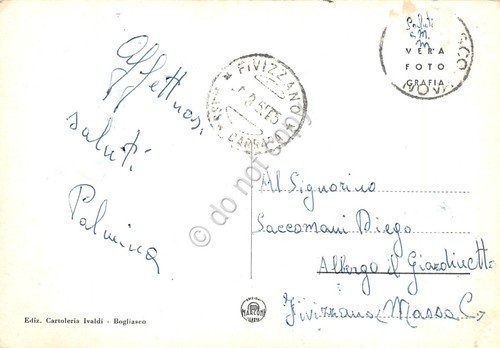 Affettuosi
saluti
Palmina
Saluti
a M.
M
VERA
FOTO
GRAFIA
FIVIZZANO
CARRARA
do not copy
Al Signorino
Saccomani Diego
Albergo il Giardinetto
Fivizzano Massa C.
MARCONI
Ediz. Cartoleria Ivaldi - Bogliasco